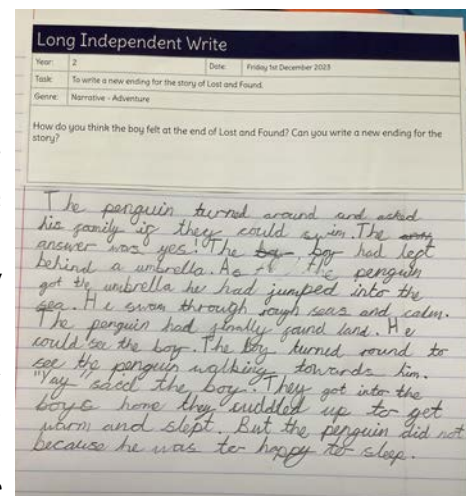 Long Independent Write
Year: 2 Date: Friday 1st December 2023
Task: To write a new ending for the story of Lost and Found.
Genre: Narrative - Adventure
How do you think the boy felt at the end of Lost and Found? Can you write a new ending for the
story?
The penguin turned around and asked
his family if they could swim. The
answer was yes! The boy had left
behind a umbrella. As the penguin
got the umbrella he had jumped into the
sea. He swam through rough seas and calm.
The penguin had finally found land. He
could see the boy. The boy turned round to
see the penguin walking towards him.
"Yay" said the boy. They got into the
boys home they cuddled up to get
warm and slept. But the penguin did not
because he was to happy to sleep.